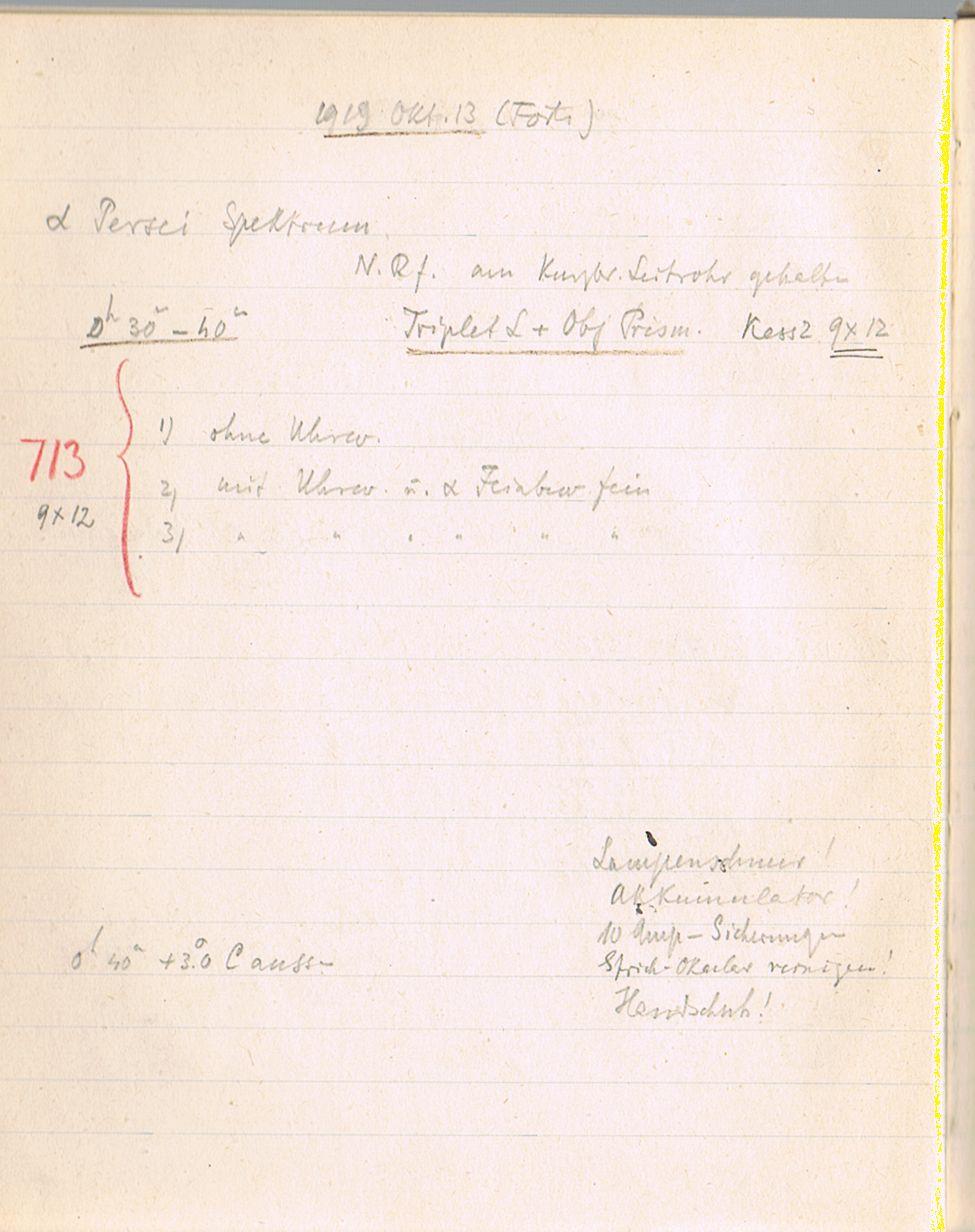 1919 Okt. 13 (Foto)
α Persei Spektrum
N. Rf. am Kurzbr. Leitrohr gehalten
0ʰ 30ᵐ – 40ᵐ Triplet L + Obj Prism. Kass2 9×12
1) ohne Uhrw.
713
2) mit Uhrw. u. α Feinbew. fein
9×12
3) " " " " " "
Lampenschnur!
Akkumulator!
10 Amp – Sicherungen
0ʰ 40ᵐ +3.°0
Strich-Okular reinigen!
Handschuh!